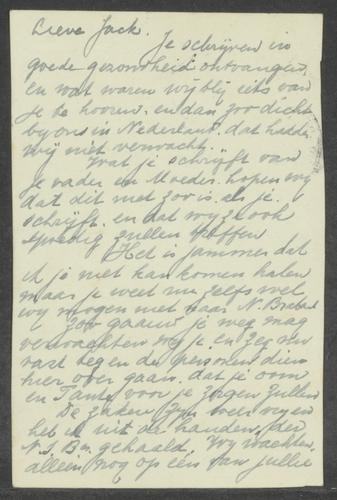 Lieve Jack.
Je schrijven in
goede gezondheid ontvangen,
en wat waren wij blij iets van
je te hooren, en dan zoo dicht
bij ons in Nederland, dat hadden
wij niet verwacht.
Wat je schrijft van
je vader en Moeder hopen wij
dat dit niet zoo is als je
schrijft, en dat wij ze ook
spoedig zullen treffen
Het is jammer dat
ik je niet kan komen halen
maar je weet nu zelfs wel
wij mogen niet naar N. Brabant
Zoo gauw je weg mag
verwachten wij je en zeg
vast tegen de personen die
hier over gaan, dat je oom
en Tante voor je zorgen zullen
De zaken zijn weer
heb ik uit de handen der
N.S.B.ers gehaald. Wij wachten
alleen nog op één van jullie